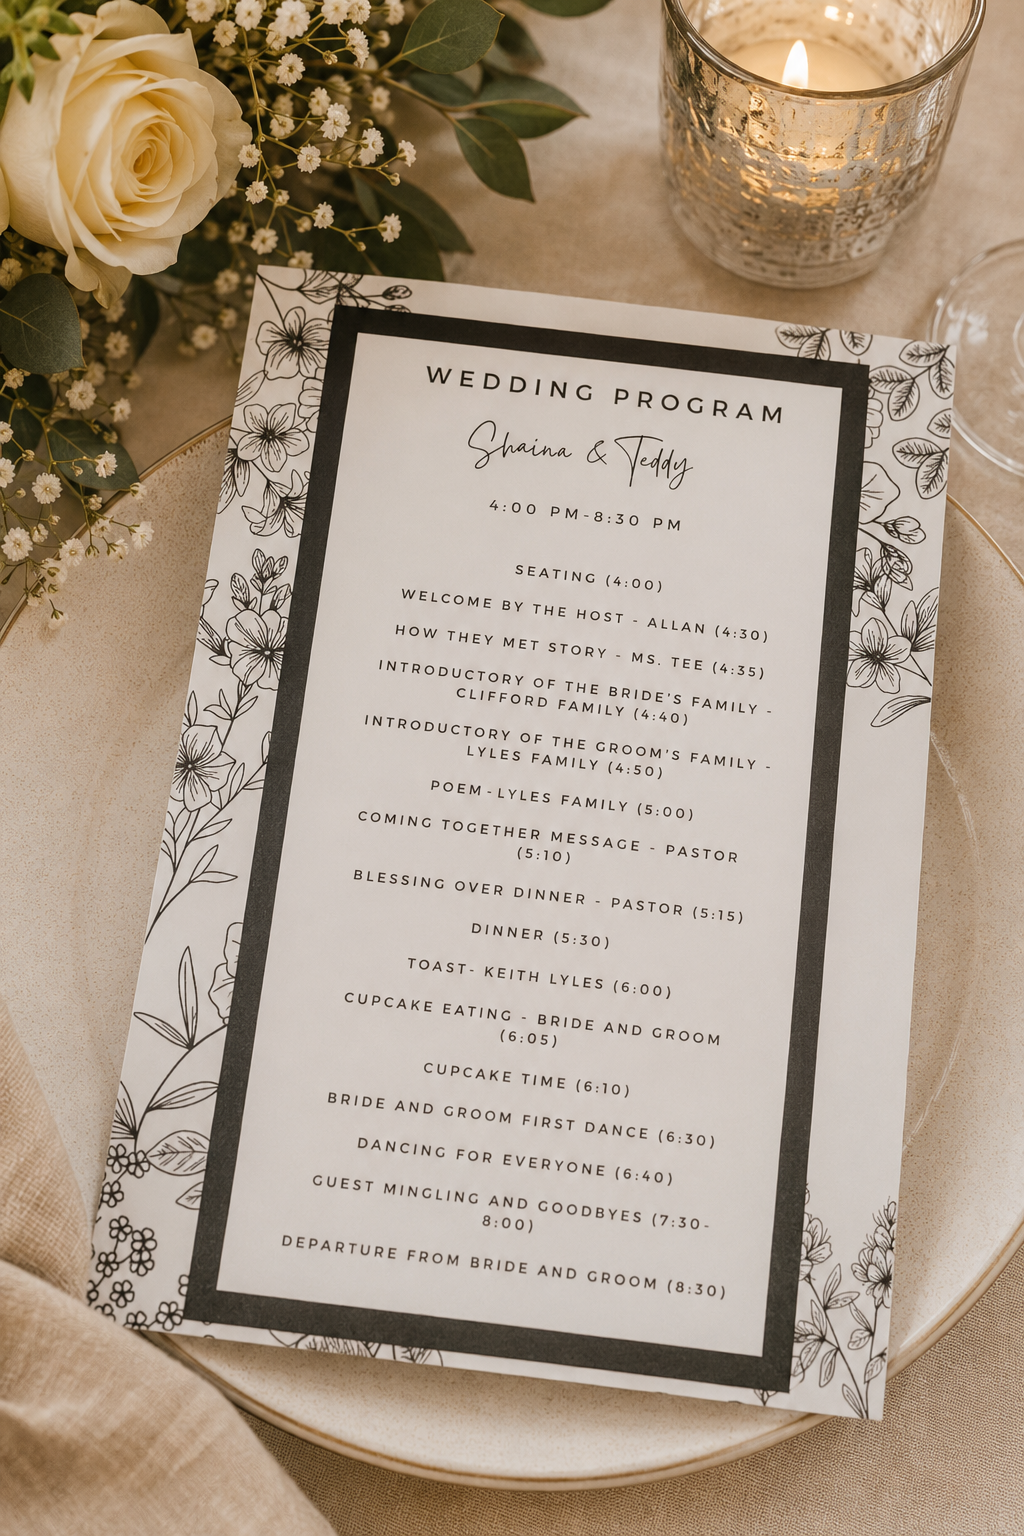 WEDDING PROGRAM
Shaina & Teddy
4:00 PM-8:30 PM
SEATING (4:00)
WELCOME BY THE HOST - ALLAN (4:30)
HOW THEY MET STORY - MS. TEE (4:35)
INTRODUCTORY OF THE BRIDE'S FAMILY -
CLIFFORD FAMILY (4:40)
INTRODUCTORY OF THE GROOM'S FAMILY -
LYLES FAMILY (4:50)
POEM-LYLES FAMILY (5:00)
COMING TOGETHER MESSAGE - PASTOR
(5:10)
BLESSING OVER DINNER - PASTOR (5:15)
DINNER (5:30)
TOAST- KEITH LYLES (6:00)
CUPCAKE EATING - BRIDE AND GROOM
(6:05)
CUPCAKE TIME (6:10)
BRIDE AND GROOM FIRST DANCE (6:30)
DANCING FOR EVERYONE (6:40)
GUEST MINGLING AND GOODBYES (7:30-
8:00)
DEPARTURE FROM BRIDE AND GROOM (8:30)